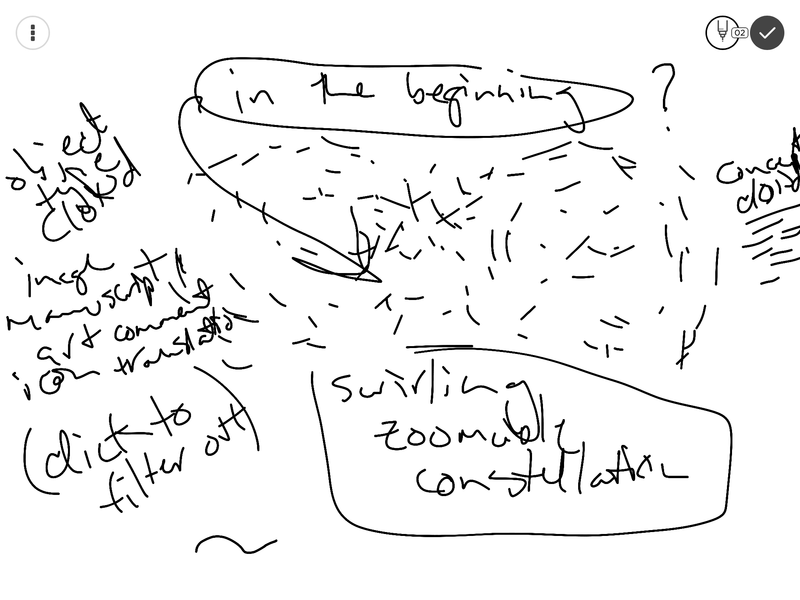 in the beginning ?
object
type
cloud
image
manuscript
art comment
icon translatio
(click to
filter out)
swirling
zoomably
constellation
02